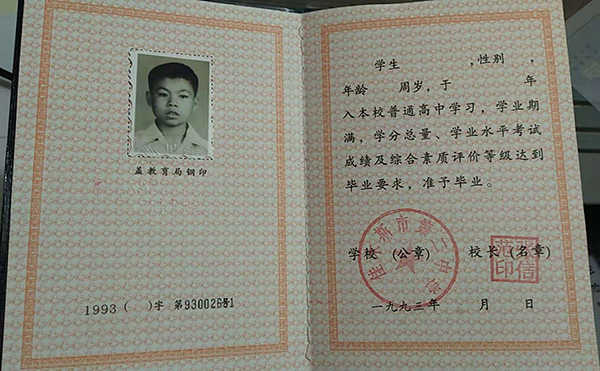 盖教育局钢印
1993 ( )字 第9300261
学生 ,性别 ,
年龄 周岁,于 年
入本校普通高中学习,学业期
满,学分总量、学业水平考试
成绩及综合素质评价等级达到
毕业要求,准予毕业。
学校(公章) 校长(名章)
佳木斯市第二中学
一九九三年 月 日